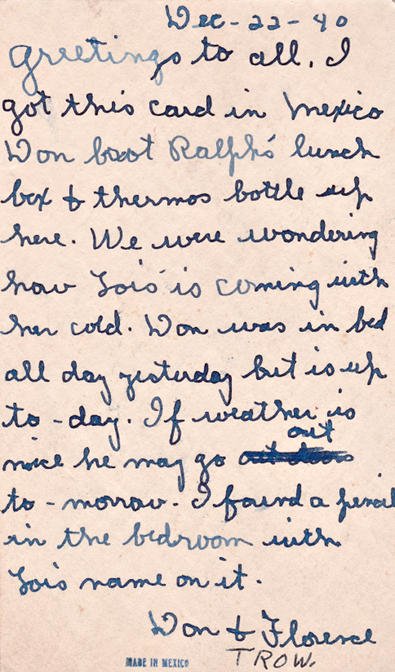 Dec - 22 - 40
Greetings to all. I
got this card in Mexico
Don boot Ralph's lunch
box & thermos bottle up
here. We were wondering
how Lois is coming with
her cold. Don was in bed
all day yesterday but is up
to-day. If weather is
out
nice he may go
to-morrow. I found a pencil
in the bedroom with
Lois name on it.
Don & Florence
TROW.
MADE IN MEXICO